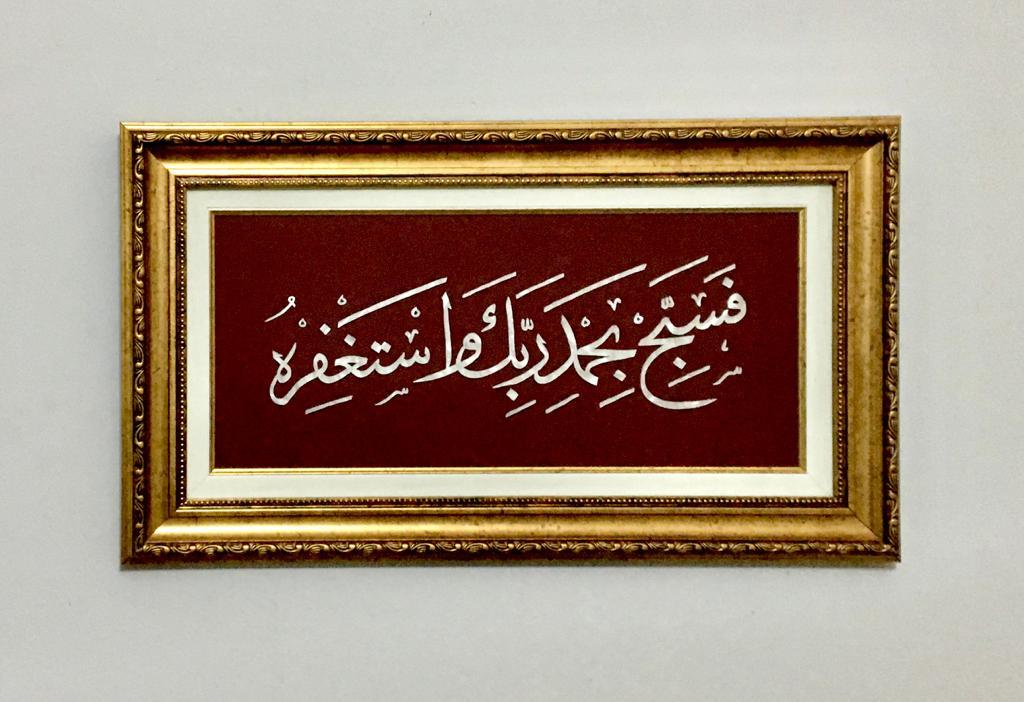 فَسَبِّحْ بِحَمْدِ رَبِّكَ وَاسْتَغْفِرْهُ